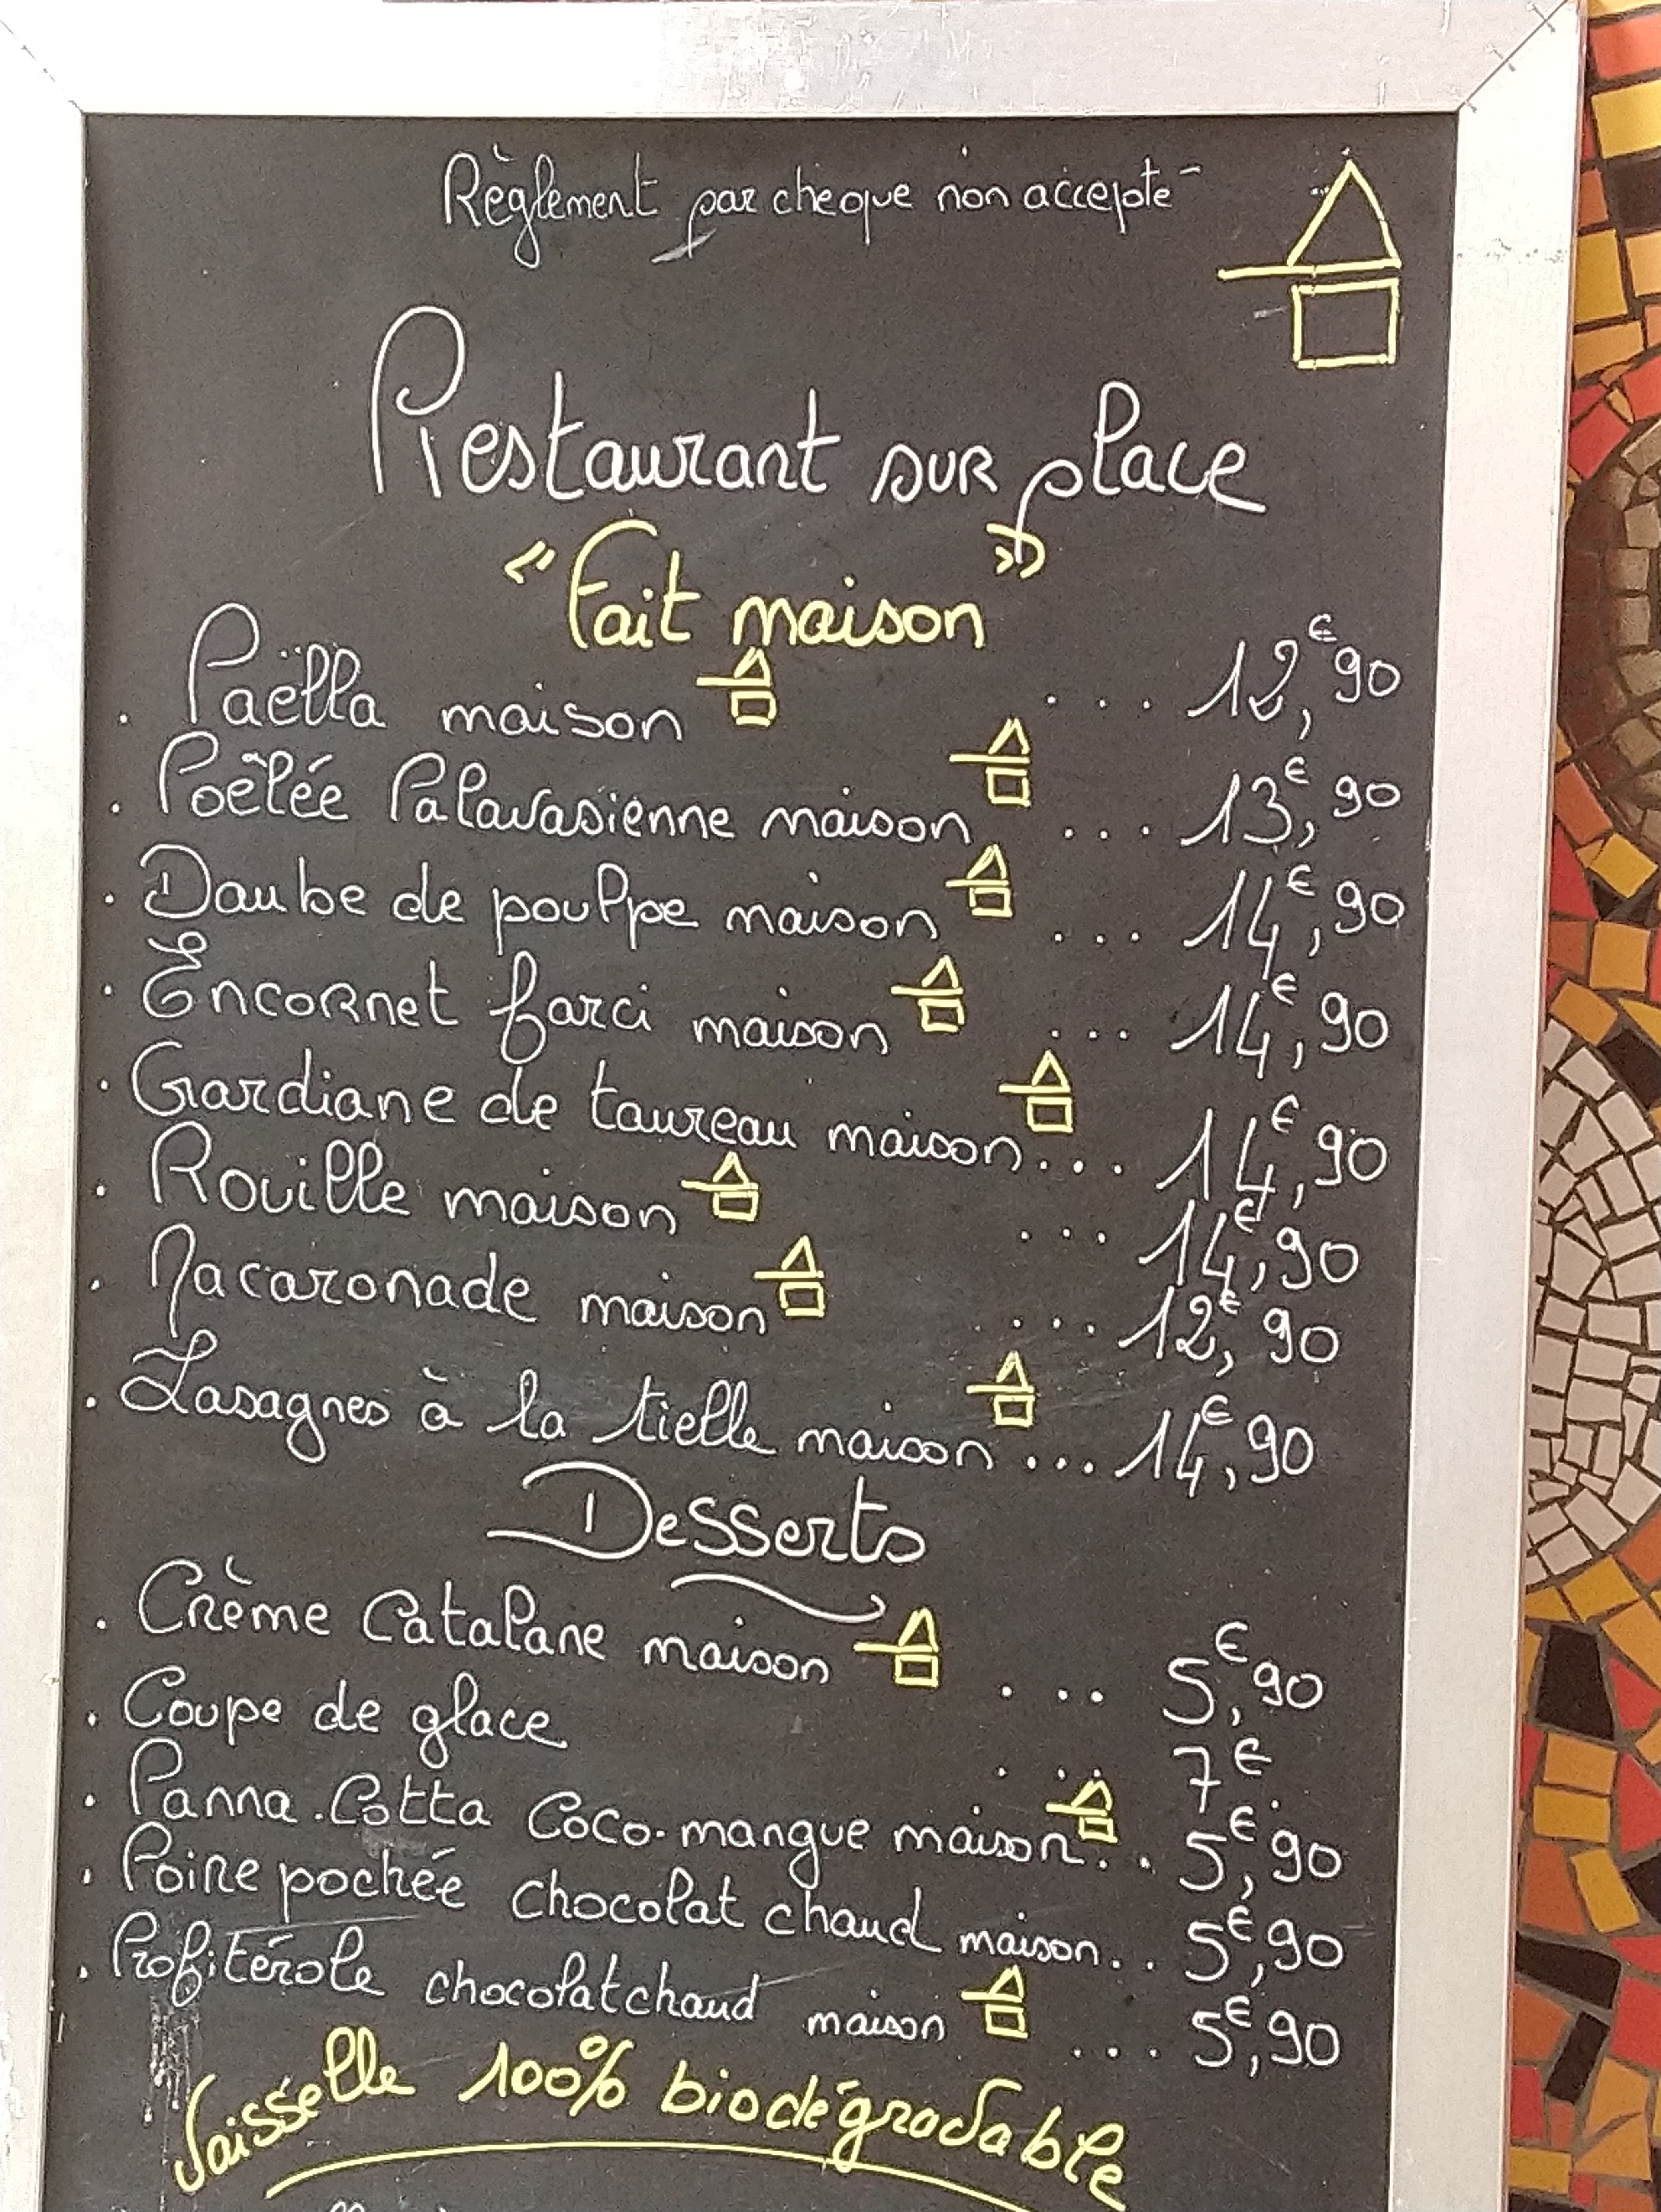 Règlement par cheque non accepté
Restaurant sur place
"Fait maison"
. Paëlla maison ... 12,€90
. Poêlée Palavasienne maison ... 13,€90
. Daube de poulpe maison ... 14,€90
. Encornet farci maison ... 14,€90
. Gardiane de taureau maison... 14,€90
. Rouille maison ... 14,€90
. Macaronade maison .... 12,€90
. Lasagnes à la tielle maison ... 14,€90
Desserts
. Crème Catalane maison ... 5,€90
. Coupe de glace ... 7€
. Panna.Cotta Coco-mangue maison... 5,€90
. Poire pochée chocolat chaud maison.. 5,€90
. Profitérole chocolat chaud maison ... 5,€90
Vaisselle 100% biodégradable